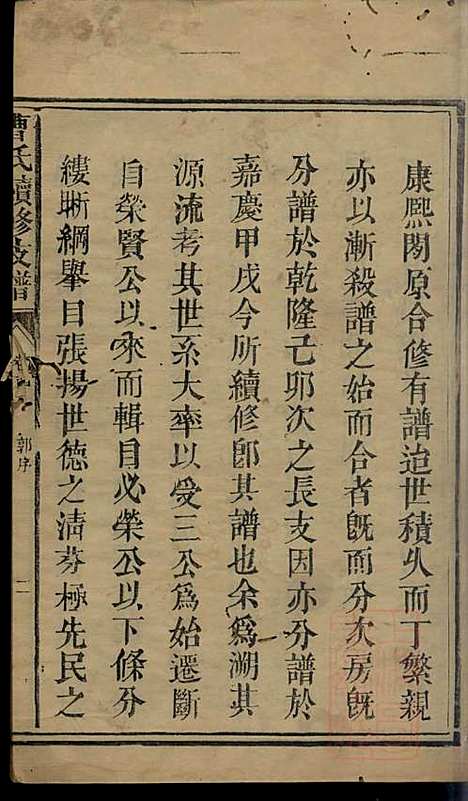 康熙閒原合修有譜迨世積久而丁繁親
亦以漸殺譜之始而合者旣而分次房旣
分譜於乾隆己卯次之長支因亦分譜於
嘉慶甲戌今所續修卽其譜也余爲溯其
源流考其世系大率以受三公爲始遷斷
自榮賢公以來而輯目必榮公以下條分
縷晰綱舉目張揚世德之淸芬極先民之
曹氏續修支譜
郭序
二